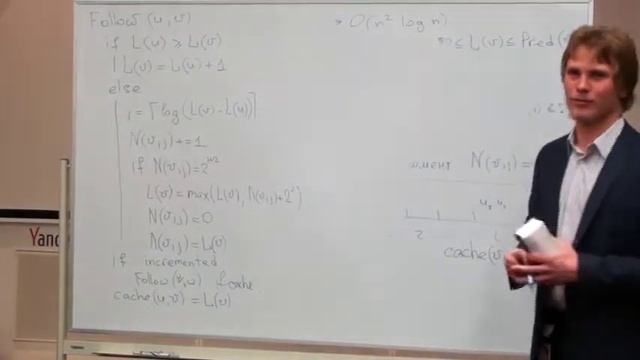 Follow (u, v)
if L(u) ≥ L(v)
L(v) = L(u) + 1
else
j = ⌈log (L(v) - L(u))⌉
N(v, j) += 1
if N(v, j) = 2^{j+2}
L(v) = max(L(v), Λ(v, j) + 2^j)
N(v, j) = 0
Λ(v, j) = L(v)
if incremented
Follow (v, w) if cache
cache (u, v) = L(v)
O(n² log n)
≤ L(v) ≤ Pred
момент N(v, j) =
2
cache(v
Yand